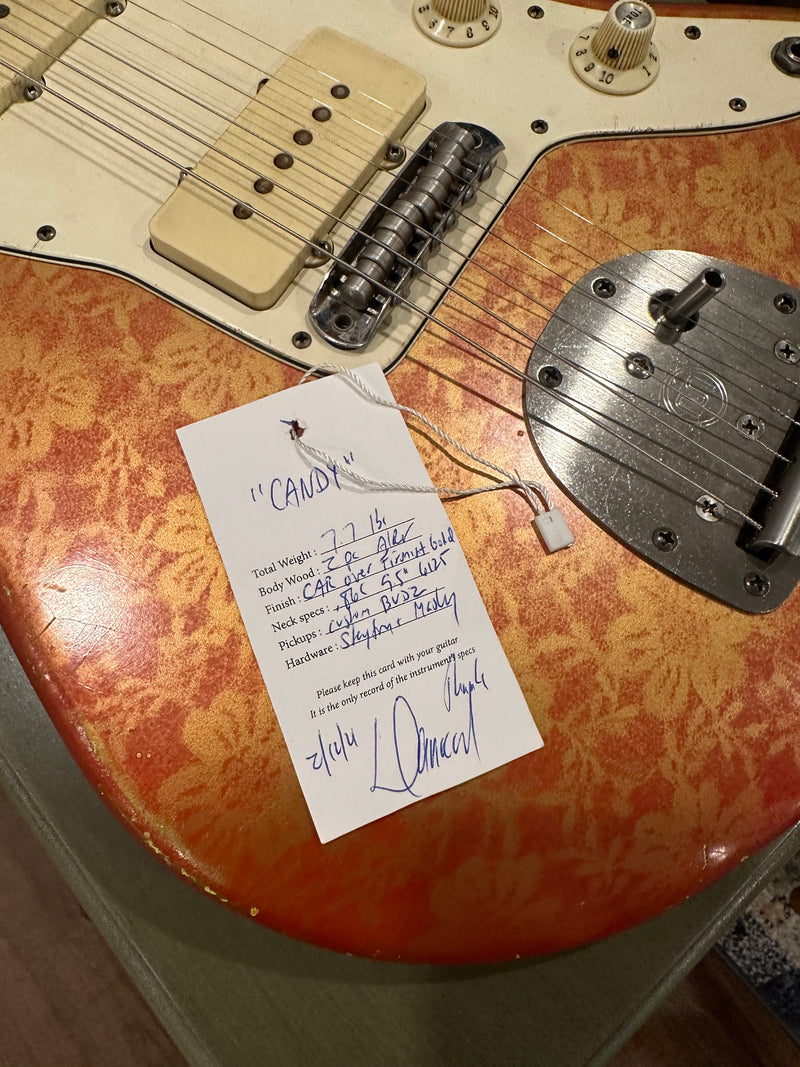 5 6 7 8 9 10
TONE
7 8 9 10 1 2
"CANDY"
Total Weight: 7.7 lbs
Body Wood: 2 pc Alder
Finish: CAR over Firemist Gold
Neck specs: 9.5" 6125
Pickups: custom
Hardware: Staytrem Mastery
Please keep this card with your guitar
It is the only record of the instrument's specs